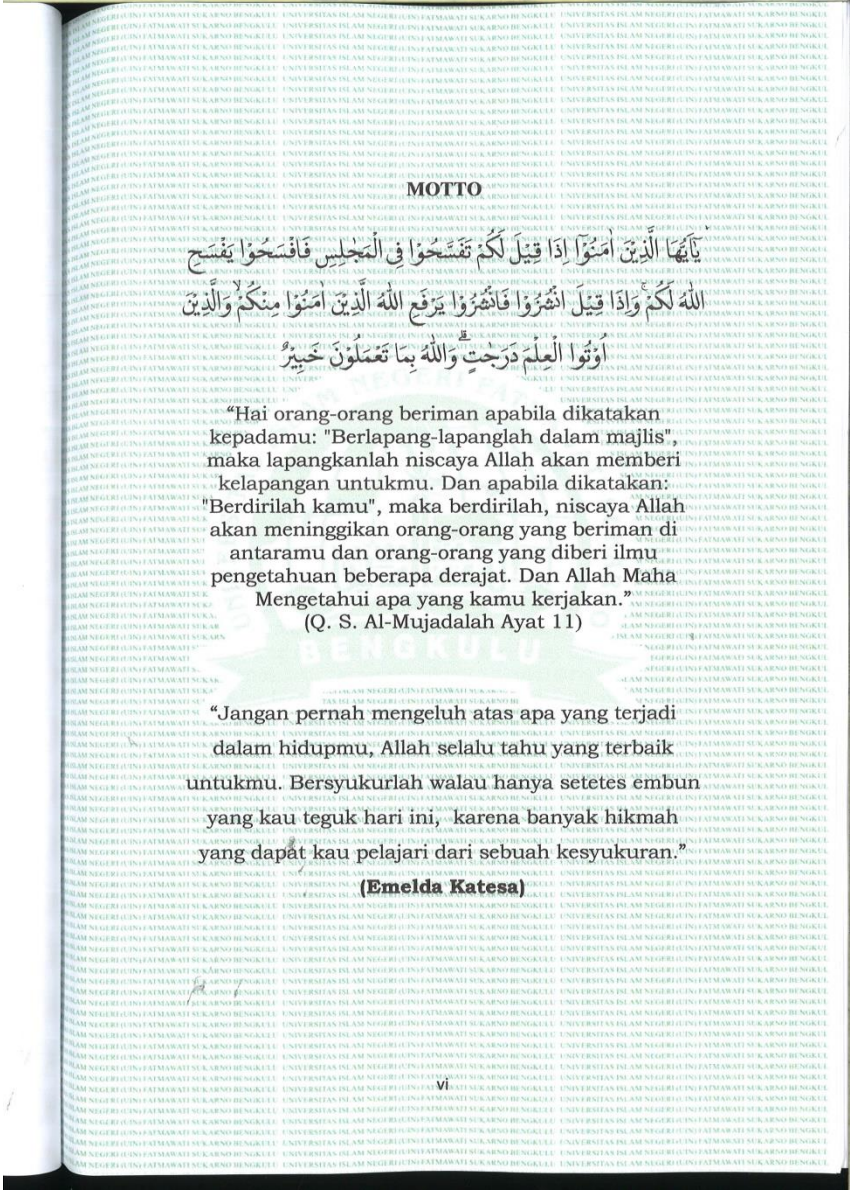 MOTTO
يٰٓاَيُّهَا الَّذِيْنَ اٰمَنُوْٓا اِذَا قِيْلَ لَكُمْ تَفَسَّحُوْا فِى الْمَجٰلِسِ فَافْسَحُوْا يَفْسَحِ
اللّٰهُ لَكُمْۚ وَاِذَا قِيْلَ انْشُزُوْا فَانْشُزُوْا يَرْفَعِ اللّٰهُ الَّذِيْنَ اٰمَنُوْا مِنْكُمْۙ وَالَّذِيْنَ
اُوْتُوا الْعِلْمَ دَرَجٰتٍۗ وَاللّٰهُ بِمَا تَعْمَلُوْنَ خَبِيْرٌ
“Hai orang-orang beriman apabila dikatakan
kepadamu: "Berlapang-lapanglah dalam majlis",
maka lapangkanlah niscaya Allah akan memberi
kelapangan untukmu. Dan apabila dikatakan:
"Berdirilah kamu", maka berdirilah, niscaya Allah
akan meninggikan orang-orang yang beriman di
antaramu dan orang-orang yang diberi ilmu
pengetahuan beberapa derajat. Dan Allah Maha
Mengetahui apa yang kamu kerjakan.”
(Q. S. Al-Mujadalah Ayat 11)
BENGKULU
“Jangan pernah mengeluh atas apa yang terjadi
dalam hidupmu, Allah selalu tahu yang terbaik
untukmu. Bersyukurlah walau hanya setetes embun
yang kau teguk hari ini, karena banyak hikmah
yang dapat kau pelajari dari sebuah kesyukuran.”
(Emelda Katesa)
vi